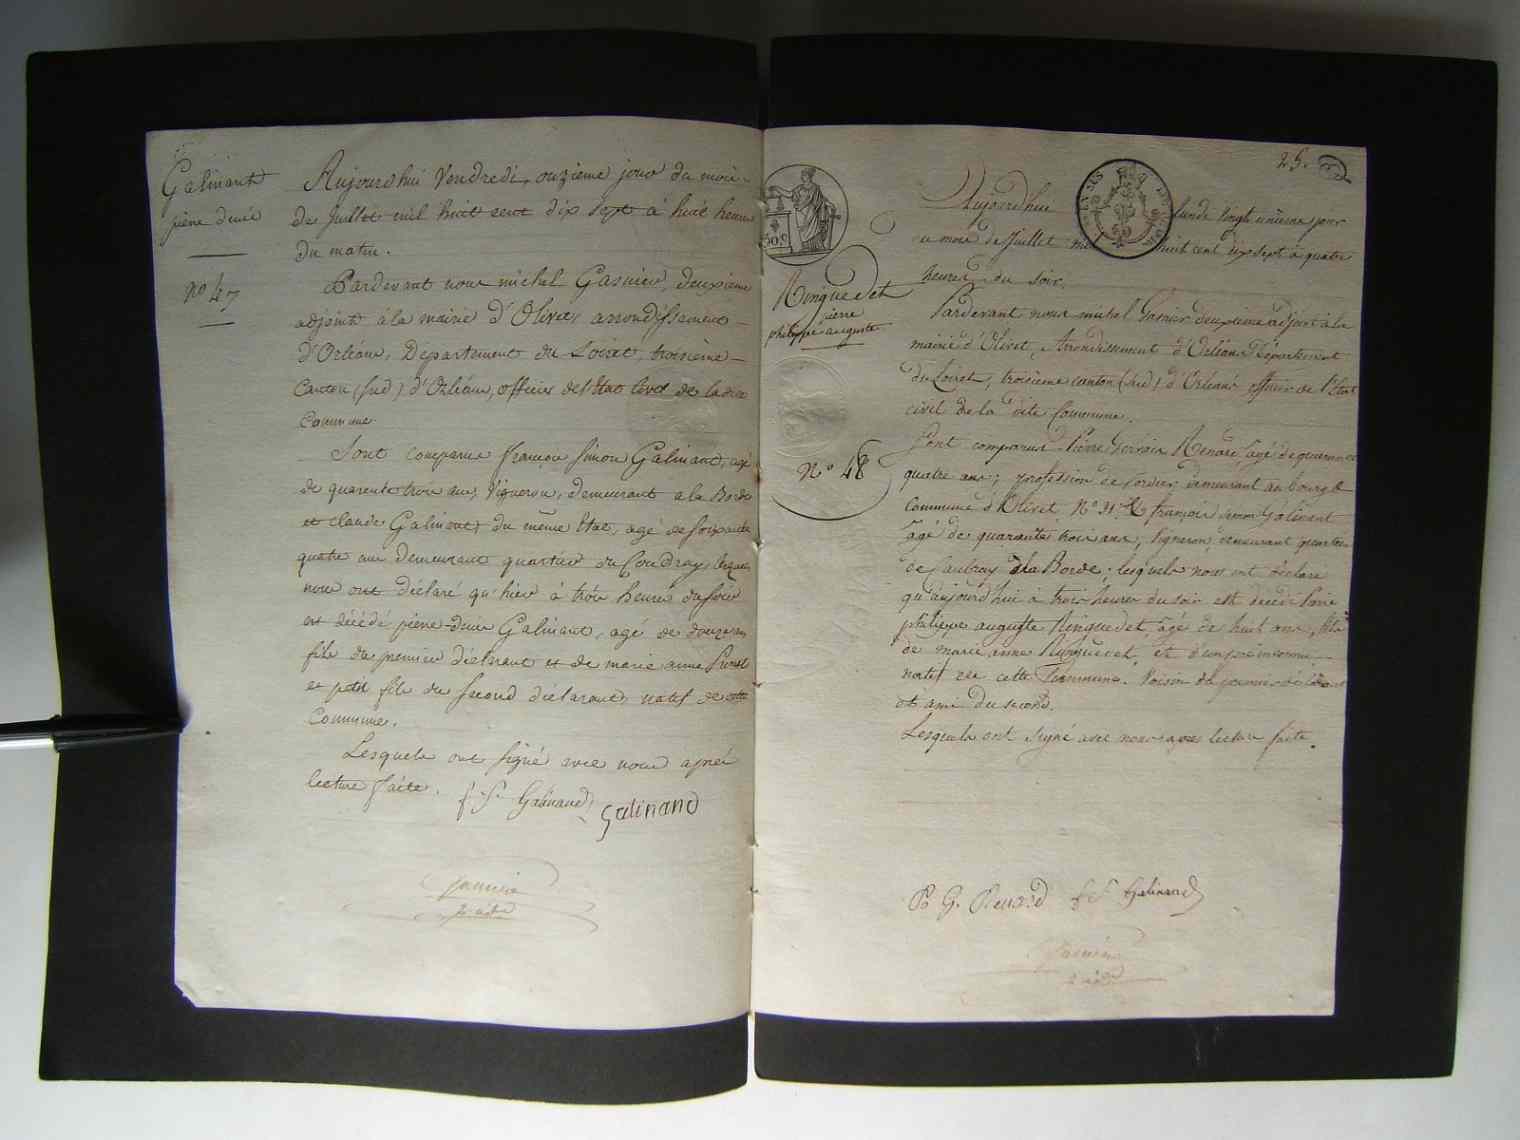 Galinant
pierre denis
no 47
Aujourdhui Vendredi, onzième jour du mois
de Juillet mil huit cent dix sept à huit heures
du matin.
Pardevant nous michel Gasnier, deuxième
adjoint à la mairie d'Olivet, arrondissement
d'Orléans, Departement du Loiret, troisième
Canton (Sud) d'Orléans, officier de l'état civil de ladite
Commune.
Sont comparus françois Simon Galinant, agé
de quarente trois ans, Vigneron, demeurant a la Borde
et Claude Galinant, du même état, agé de soixante
quatre ans demeurant quartier du Coudray, lesquels
nous ont déclaré qu'hier à trois heures du soir
est décédé pierre denis Galinant, agé de douze ans
fils du premier déclarant et de marie anne
et petit fils du second déclarant, natif de cette
Commune.
Lesquels ont signé avec nous après
lecture faite.
f. S. Galinand
Galinand
Gasnier
25.
50 c
Ringuedet
pierre
philippe auguste
N° 48
Aujourdhui lundi vingt unième jour
du mois de Juillet mil huit cent dix sept à quatre
heures du soir.
Pardevant nous michel Gasnier deuxième adjoint à la
mairie d'Olivet, Arrondissement d'Orléans Département
du Loiret, troisième canton (Sud) d'Orléans officier de l'Etat
civil de la dite Commune.
Sont comparus Pierre Renard, agé de quarante
quatre ans; profession de Cordier demeurant au bourg
Commune d'Olivet N° 31. & françois simon Galinant
âgé de quarante trois ans, Vigneron, demeurant quartier
de la Borde; lesquels nous ont déclaré
qu'aujourd'hui à trois heures du soir est décédé Pierre
philippe auguste Ringuedet, âgé de huit ans, fils
de marie anne Ringuedet, et d'un père inconnu,
natif de cette Commune. Voisin du premier déclarant
et ami du second.
Lesquels ont signé avec nous après lecture faite.
P. G. Renard f. S. Galinand
Gasnier